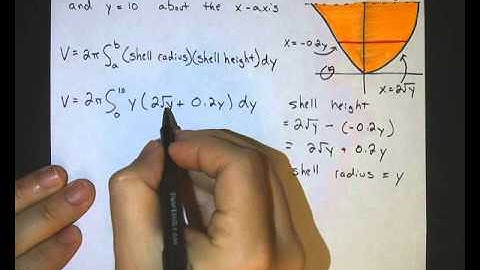 and y = 10 about the x-axis
V = 2π∫ₐᵇ (shell radius)(shell height) dy
V = 2π∫₀¹⁰ y (2√y + 0.2y) dy
x = -0.2y
x = 2√y
shell height
= 2√y - (-0.2y)
= 2√y + 0.2y
shell radius = y